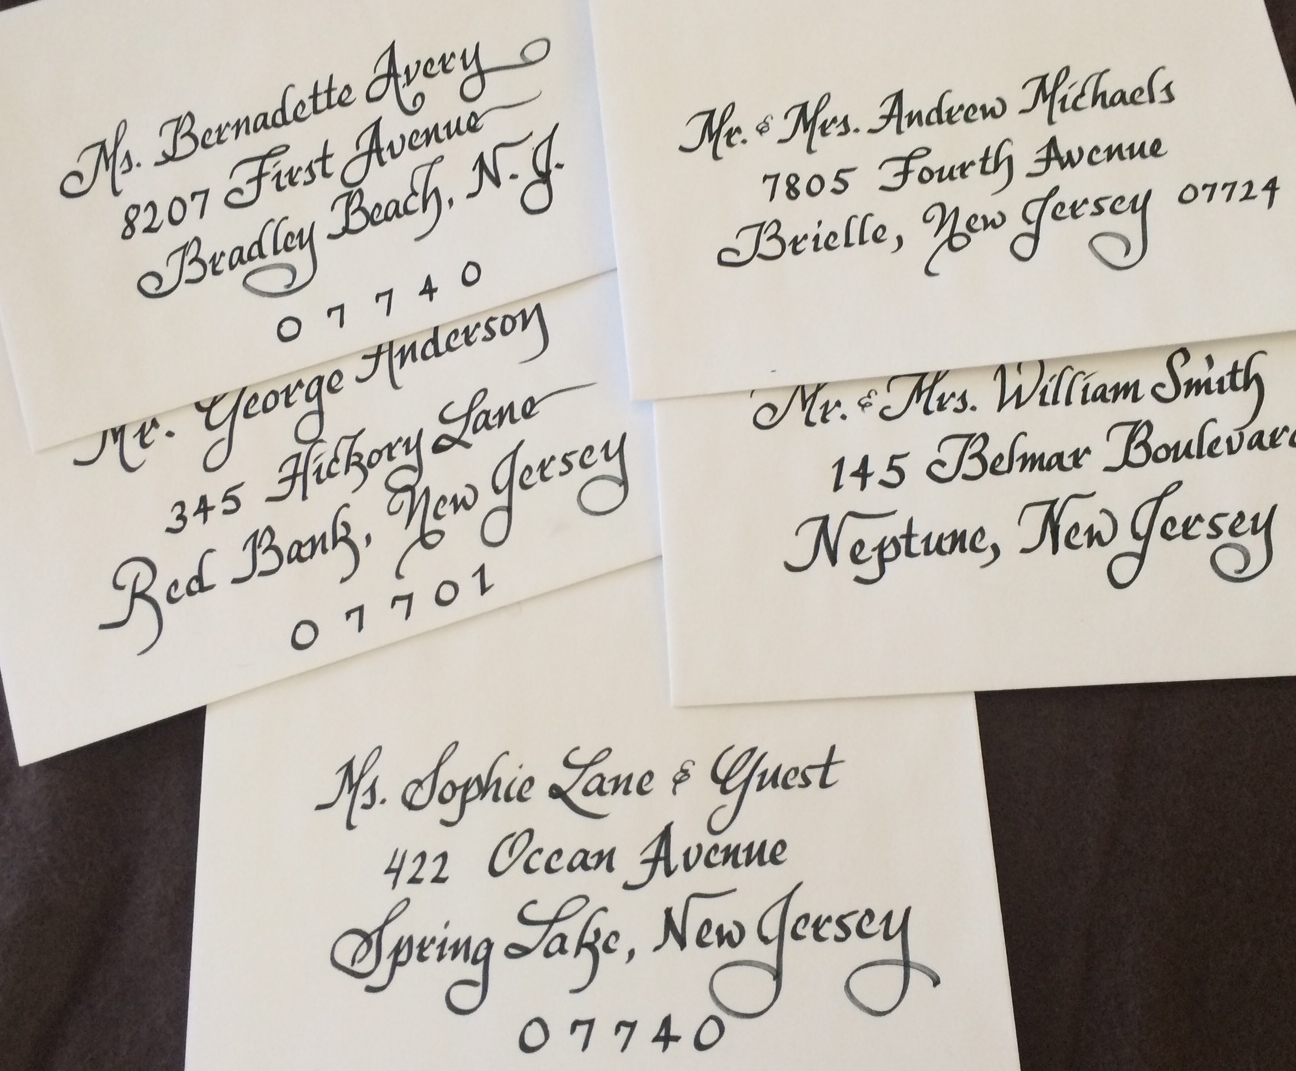 Ms. Bernadette Avery
8207 First Avenue
Bradley Beach, N.J.
07740
Mr. & Mrs. Andrew Michaels
7805 Fourth Avenue
Brielle, New Jersey 07724
Mr. George Anderson
345 Hickory Lane
Red Bank, New Jersey
07701
Mr. & Mrs. William Smith
145 Belmar Boulevard
Neptune, New Jersey
Ms. Sophie Lane & Guest
422 Ocean Avenue
Spring Lake, New Jersey
07740